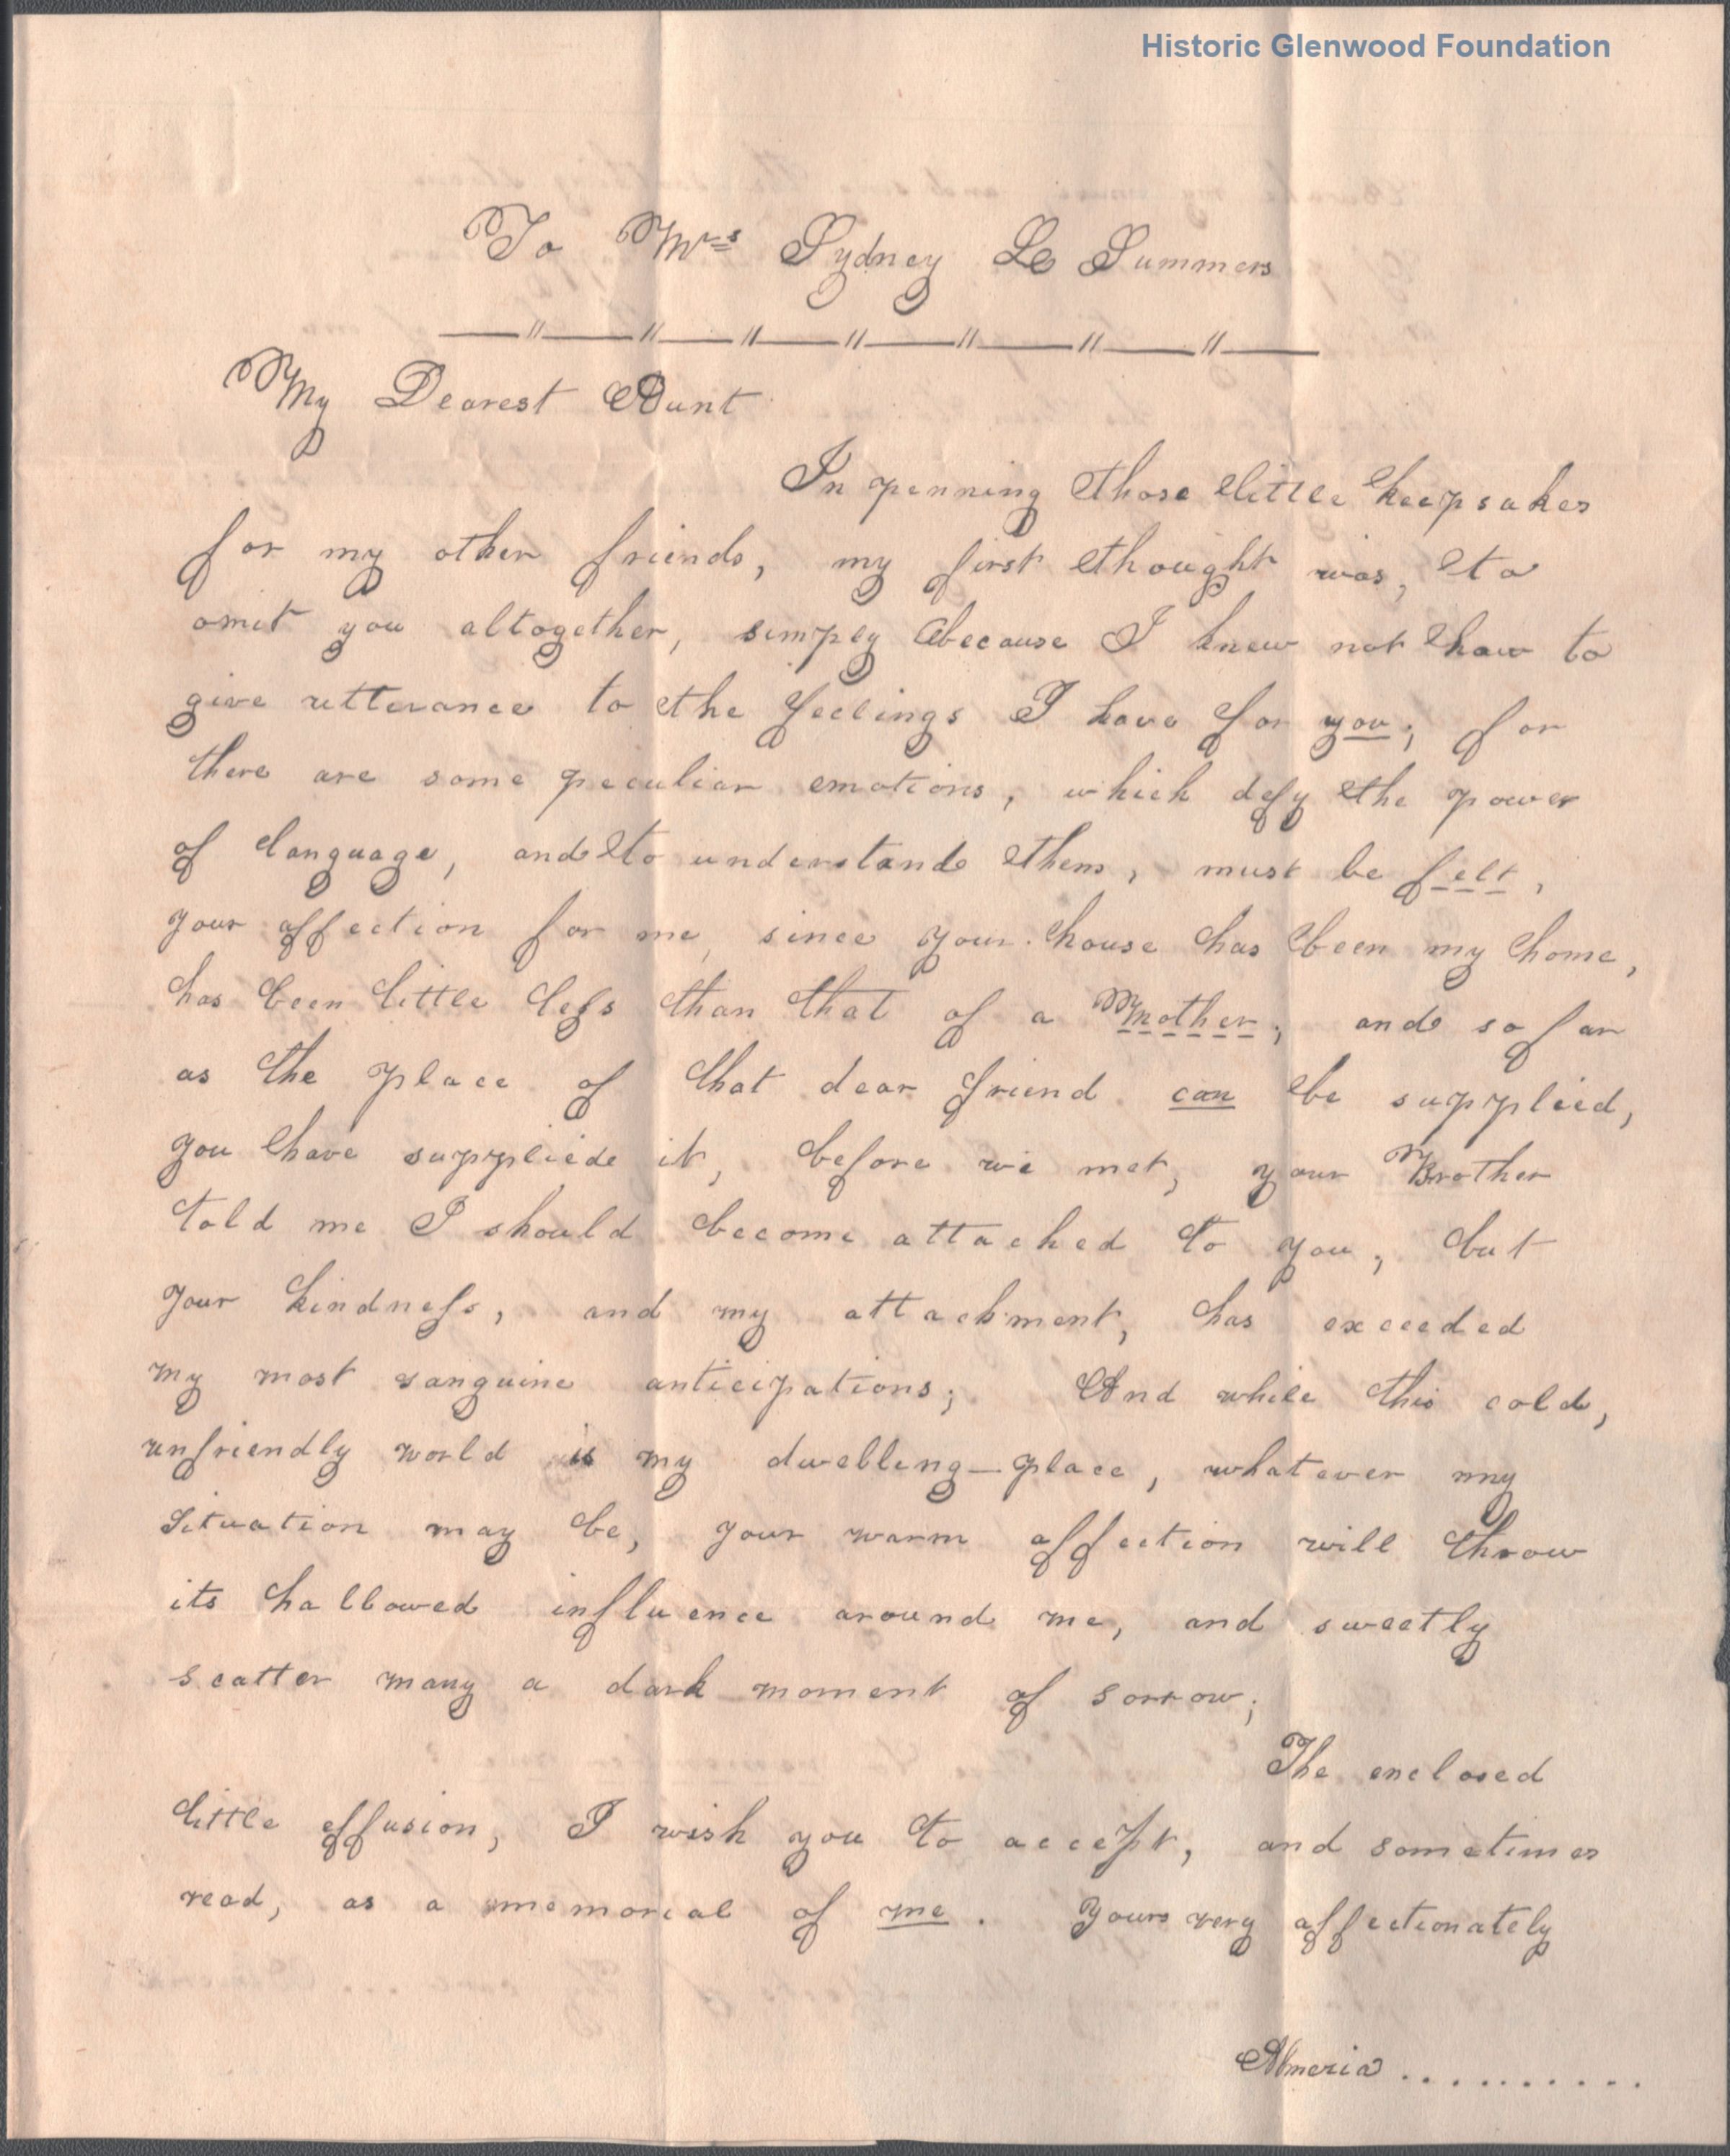 Historic Glenwood Foundation
To Mrs Sydney L Summers
My Dearest Aunt
In penning those little keepsakes
for my other friends, my first thought was, to
omit you altogether, simply because I knew not how to
give utterance to the feelings I have for you; for
there are some peculiar emotions, which defy the power
of language, and to understand them, must be felt,
your affection for me, since your house has been my home,
has been little less than that of a Mother; and so far
as the place of that dear friend can be supplied,
you have supplied it, before we met, your Brother
told me I should become attached to you, but
your kindness, and my attachment, has exceeded
my most sanguine anticipations; And while this cold,
unfriendly world is my dwelling-place, whatever my
situation may be, your warm affection will throw
its hallowed influence around me, and sweetly
scatter many a dark moment of sorrow;
The enclosed
little effusion, I wish you to accept, and sometimes
read, as a memorial of me. Yours very affectionately
Almeria..........